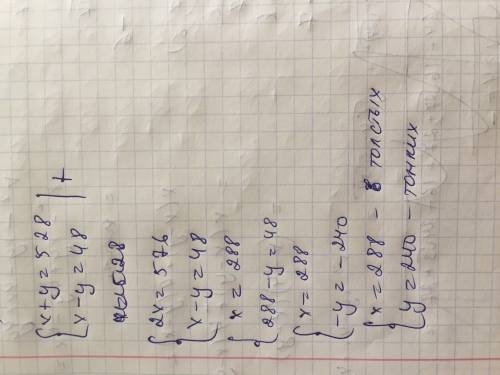 {x+y=528 | +
{x-y=48
{2x=576
{x-y=48
{x=288
{288-y=48
{x=288
{-y=-240
{x=288 - толстых
{y=240 - тонких